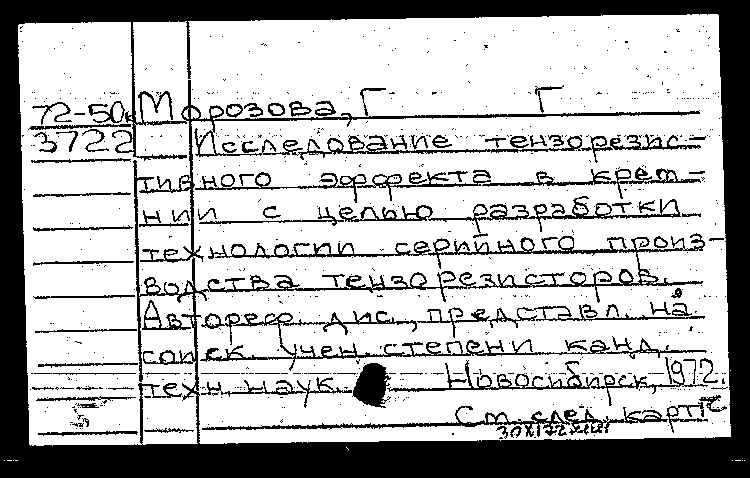 72-50к Морозова, Г Г
3722 Исследование тензорезис-
тивного эффекта в крем-
нии с целью разработки
технологии серийного произ-
водства тензорезисторов.
Автореф. дис., представл. на
соиск. учен. степени канд.
техн. наук. Новосибирск, 1972.
См. след. карт